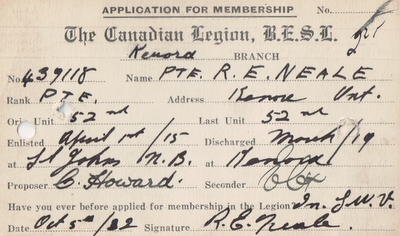 APPLICATION FOR MEMBERSHIP No.
The Canadian Legion, B.E.S.L.
Kenora BRANCH
No. 439118 Name PTE. R. E. NEALE
Rank PTE. Address Kenora Ont.
Ori Unit 52nd Last Unit 52nd
Enlisted April 1st/15 Discharged March/19
at St Johns N.B. at Kenora
Proposer C. Howard. Seconder
Have you ever before applied for membership in the Legion In. G.W.V.
Date Oct 5th/32 Signature R.E. Neale.